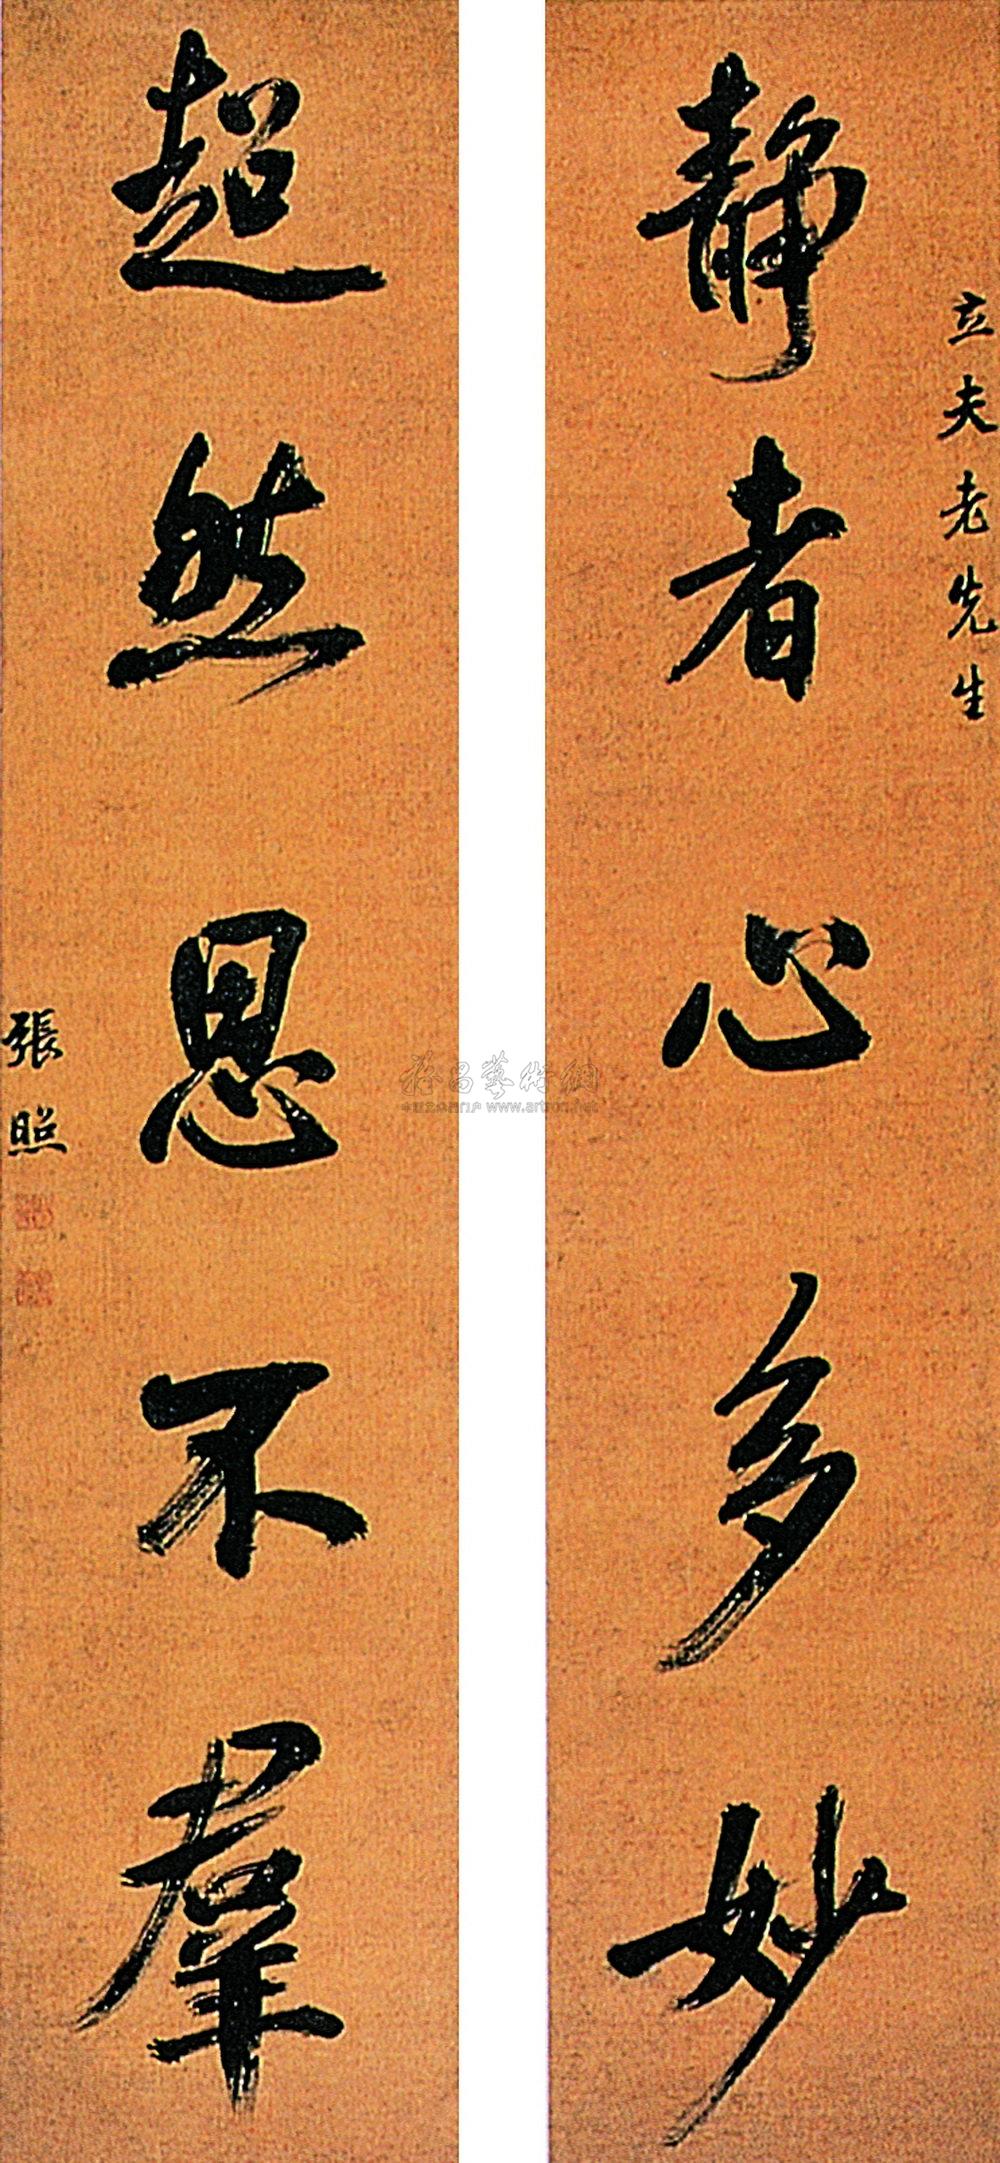 立夫老先生
静者心多妙
超然思不羣
張照
www.artron.net